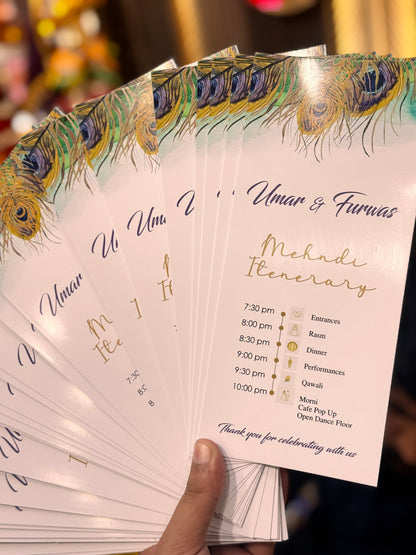 Umar & Furwas
Mehndi
Itenerary
7:30 pm Entrances
8:00 pm Rasm
8:30 pm Dinner
9:00 pm Performances
9:30 pm Qawali
10:00 pm Morni
Cafe Pop Up
Open Dance Floor
Thank you for celebrating with us
Umar
Umar
Meh
Iten
7:30